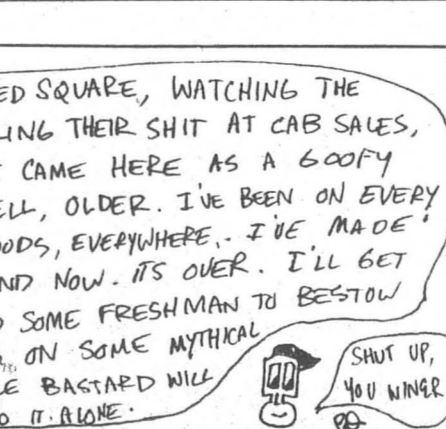 ED SQUARE, WATCHING THE
LING THEIR SHIT AT CAB SALES,
CAME HERE AS A GOOFY
ELL, OLDER. I'VE BEEN ON EVERY
OODS, EVERYWHERE.. I'VE MADE
ND NOW. ITS OVER. I'LL GET
SOME FRESHMAN TO BESTOW
ON SOME MYTHICAL
LE BASTARD WILL
O IT. ALONE.
SHUT UP,
YOU WINER